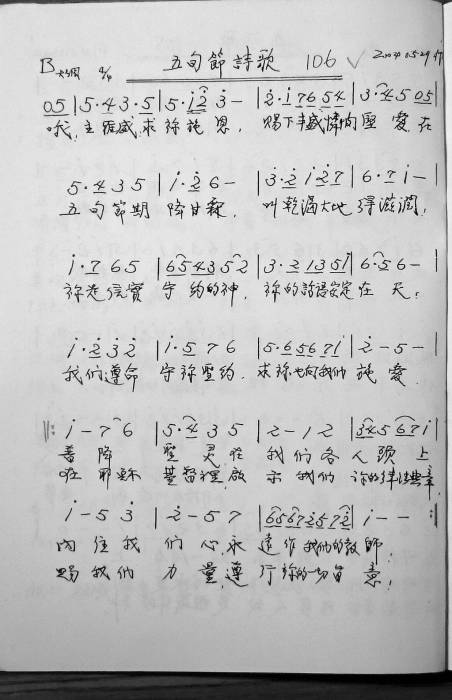 五旬節詩歌 106
B大调 4/4 2024.05.29
05|5·43·5|5·i2 3-|2·i7654|3·4505|
哦,主耶威,求祢施恩,賜下丰盛慷慨聖愛,在
5·435|i·26-|3·2i27|6·7i-|
五旬節期降甘霖,叫乾涸大地得滋潤,
i·765|654352|3·21351|6·56-|
祢是信實守約的神,祢的話語安定在天;
i·232|i·576|5·65671|2-5-|
我們遵命守祢聖約,求祢也向我們施愛
‖:i-76|5·435|2-12|345671|
普降聖灵在我們各人頭上
在耶穌基督裡,啟示我們祢的律法典章,
i-53|2-57|65672572|i--:‖
内住我們心永遠作我們的教師;
賜我們力量遵行祢的一切旨意;